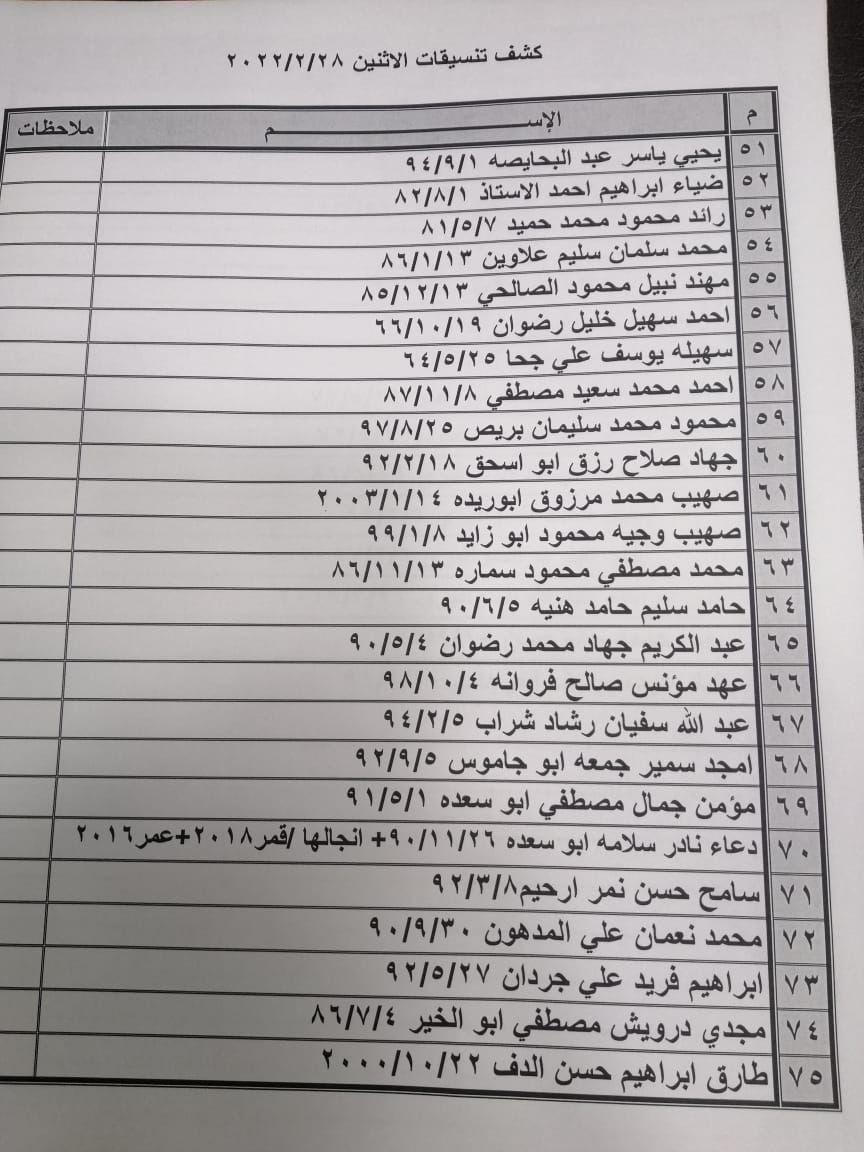 كشف تنسيقات الاثنين ٢٠٢٢/٢/٢٨
م الإســـــــم ملاحظات
٥١ يحيي ياسر عبد البحايصه ٩٤/٩/١
٥٢ ضياء ابراهيم احمد الاستاذ ٨٢/٨/١
٥٣ رائد محمود محمد حميد ٨١/٥/٧
٥٤ محمد سلمان سليم علاوين ٨٦/١/١٣
٥٥ مهند نبيل محمود الصالحي ٨٥/١٢/١٣
٥٦ احمد سهيل خليل رضوان ٦٦/١٠/١٩
٥٧ سهيله يوسف علي جحا ٦٤/٥/٢٥
٥٨ احمد محمد سعيد مصطفي ٨٧/١١/٨
٥٩ محمود محمد سليمان بريص ٩٧/٨/٢٥
٦٠ جهاد صلاح رزق ابو اسحق ٩٢/٢/١٨
٦١ صهيب محمد مرزوق ابوريده ٢٠٠٣/١/١٤
٦٢ صهيب وجيه محمود ابو زايد ٩٩/١/٨
٦٣ محمد مصطفي محمود سماره ٨٦/١١/١٣
٦٤ حامد سليم حامد هنيه ٩٠/٦/٥
٦٥ عبد الكريم جهاد محمد رضوان ٩٠/٥/٤
٦٦ عهد مؤنس صالح فروانه ٩٨/١٠/٤
٦٧ عبد الله سفيان رشاد شراب ٩٤/٢/٥
٦٨ امجد سمير جمعه ابو جاموس ٩٢/٩/٥
٦٩ مؤمن جمال مصطفي ابو سعده ٩١/٥/١
٧٠ دعاء نادر سلامه ابو سعده ٩٠/١١/٢٦+ انجالها /قمر٢٠١٨+عمر٢٠١٦
٧١ سامح حسن نمر ارحيم٩٢/٣/٨
٧٢ محمد نعمان علي المدهون ٩٠/٩/٣٠
٧٣ ابراهيم فريد علي جردان ٩٢/٥/٢٧
٧٤ مجدي درويش مصطفي ابو الخير ٨٦/٧/٤
٧٥ طارق ابراهيم حسن الدف ٢٠٠٠/١٠/٢٢